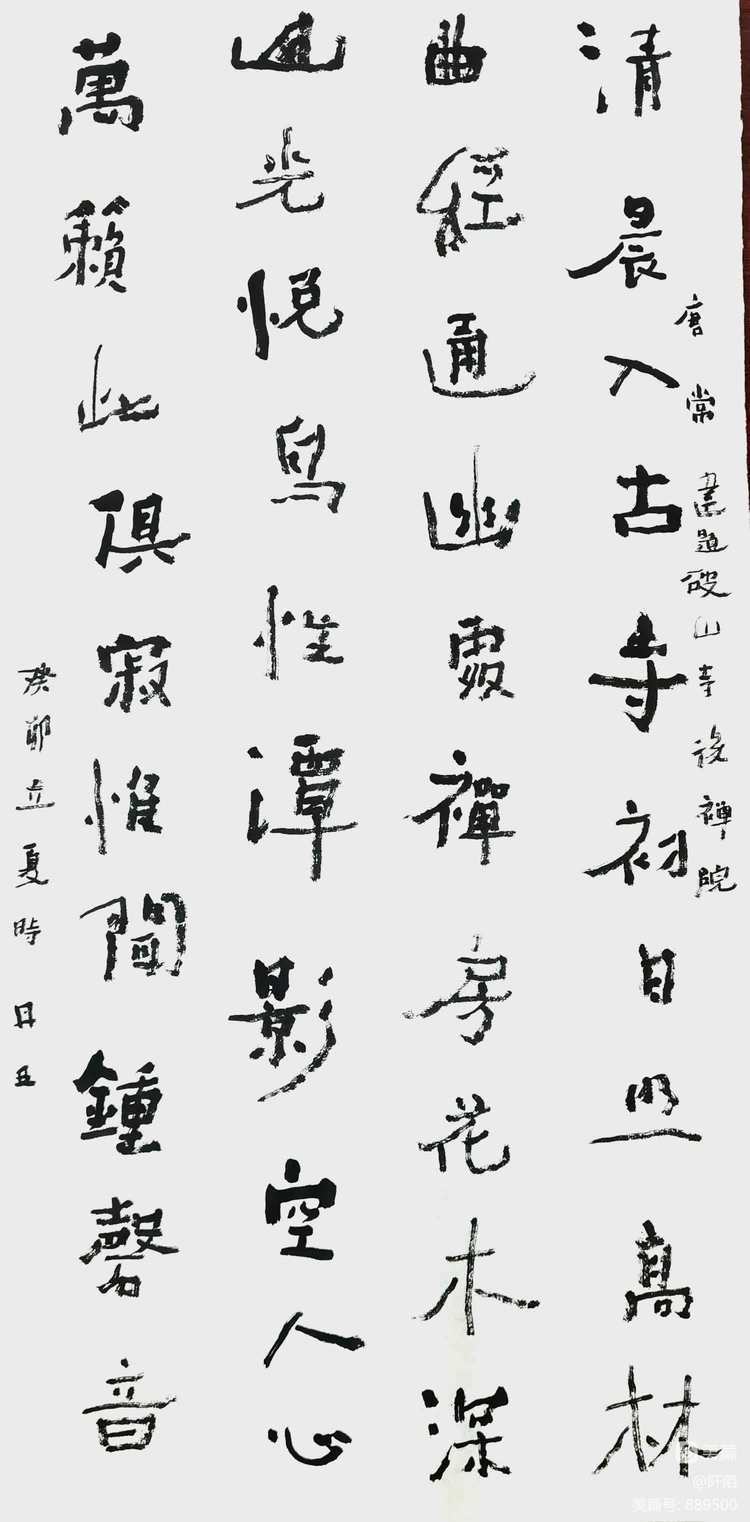 唐常建題破山寺後禪院
清晨入古寺初日照高林
曲徑通幽處禪房花木深
山光悦鳥性潭影空人心
萬籟此俱寂惟聞鍾磬音
癸卯立夏時
美篇
@阡陌
美篇号: 889500